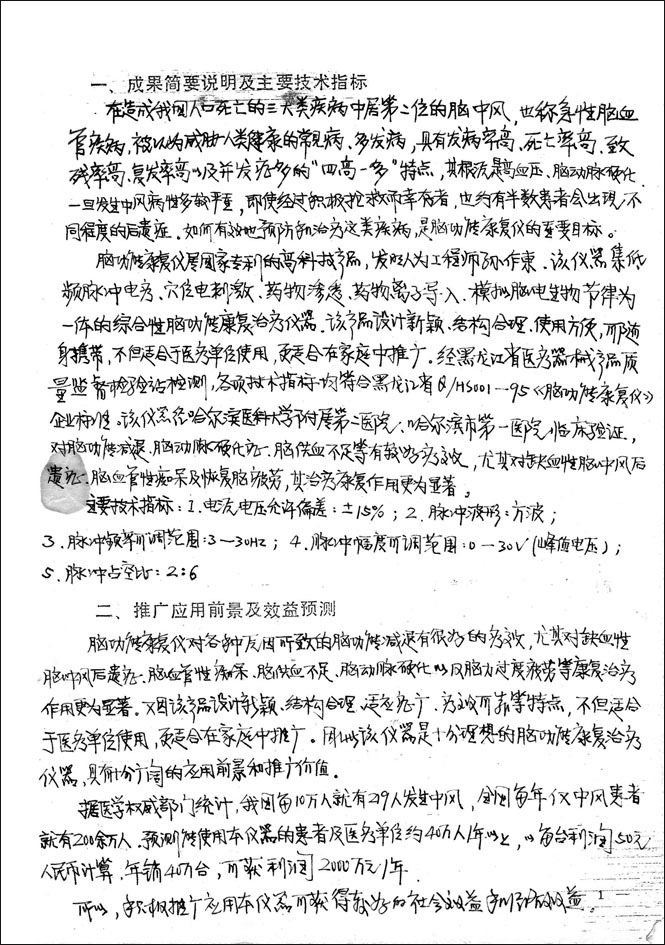 一、成果简要说明及主要技术指标
在造成我国人口死亡的三大类疾病中居第二位的脑中风，也称急性脑血
管疾病，被认为威胁人类健康的常见病、多发病，具有发病率高、死亡率高、致
残率高、复发率高以及并发症多的“四高一多”特点，其根源是高血压、脑动脉硬化，
一旦发生中风病性多数严重，即使经过积极抢救而幸存者，也约有半数患者会出现不
同程度的后遗症。如何有效地预防和治疗这类疾病，是脑功能康复仪的重要目标。
脑功能康复仪是国家专利的高科技产品，发明人为工程师孙作東。该仪器集低
频脉冲电疗、穴位电刺激、药物渗透、药物离子导入、模拟脑电生物节律为
一体的综合性脑功能康复治疗仪器。该产品设计新颖、结构合理、使用方便，可随
身携带，不但适合于医疗单位使用，更适合在家庭中推广。经黑龙江省医疗器械产品质
量监督检验站检测，各项技术指标均符合黑龙江省Q/HS001—95《脑功能康复仪》
企业标准。该仪器经哈尔滨医科大学附属第二医院、哈尔滨市第一医院临床验证，
对脑功能减退、脑动脉硬化症、脑供血不足等有较好疗效，尤其对缺血性脑中风后
遗症、脑血管性痴呆及恢复脑疲劳，其治疗康复作用更为显著。
主要技术指标：1.电流电压允许偏差：±15%；2.脉冲波形：方波；
3.脉冲频率可调范围：3—30HZ；4.脉冲幅度可调范围：0—30V（峰值电压）；
5.脉冲占空比：2:6
二、推广应用前景及效益预测
脑功能康复仪对各种原因所致的脑功能减退有很好的疗效，尤其对缺血性
脑中风后遗症、脑血管性痴呆、脑供血不足、脑动脉硬化以及脑力过度疲劳等康复治疗
作用更为显著。又因该产品设计新颖、结构合理、适应症广、疗效可靠等特点，不但适合
于医疗单位使用，更适合在家庭中推广。因此该仪器是十分理想的脑功能康复治疗
仪器，具有十分广阔的应用前景和推广价值。
据医学权威部门统计，我国每10万人就有219人发生中风，全国每年仅中风患者
就有200余万人。预测能使用本仪器的患者及医疗单位约40万人/年以上，以每台利润50元
人民币计算，年销40万台，可获利润2000万元/年。
所以，积极推广应用本仪器可获得较好的社会效益和经济效益。
1